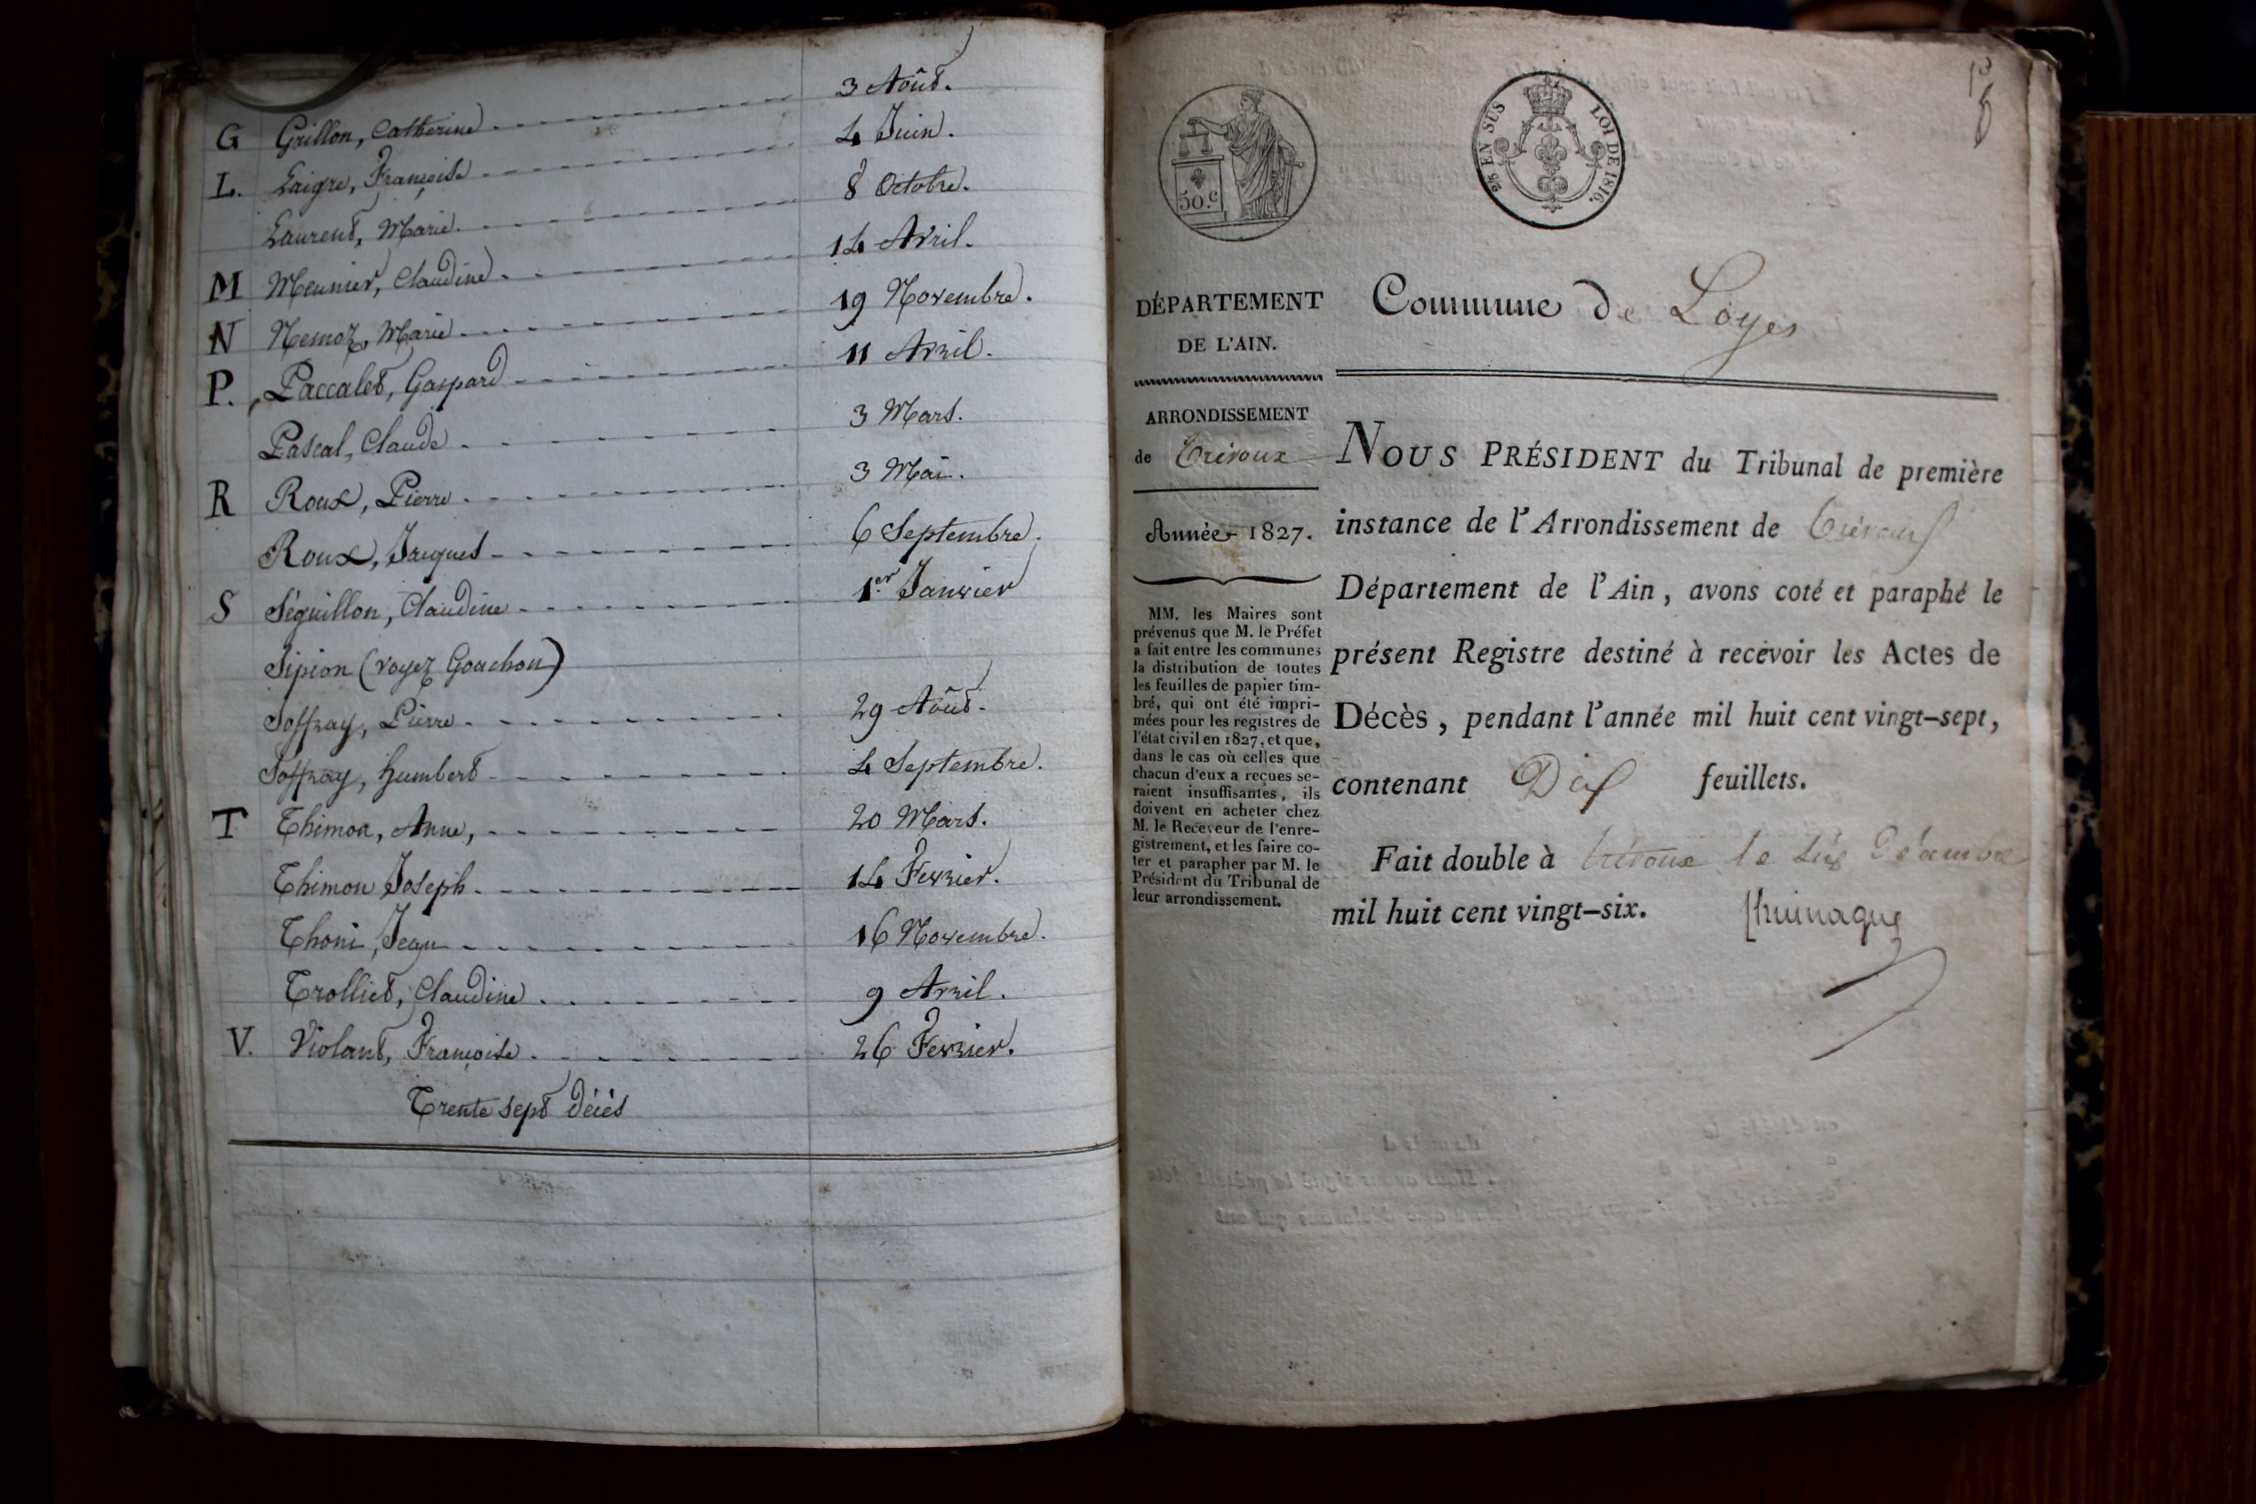 G Grillon, Catherine 3 Août.
L. Laigre, Françoise 4 Juin.
Laurent, Marie. 8 Octobre.
M Meunier, Claudine. 14 Avril.
N Nemoz, Marie 19 Novembre.
P. Paccalet, Gaspard 11 Avril.
Pascal, Claude. 3 Mars.
R Roux, Pierre. 3 Mai.
Roux, Jacques 6 Septembre.
S Séguillon, Claudine 1.er Janvier
Sipion (voyez Gouchon)
Soffray, Pierre. 29 Août.
Soffray, humbert 4 Septembre.
T Thimon, Anne, 20 Mars.
Thimon Joseph. 14 Fevrier.
Thoni, Jean 16 Novembre.
Trolliet, Claudine. 9 Avril.
V. Violant, Françoise. 26 Fevrier.
Trente sept décès
50.c
25 EN SUS LOI DE 1816.
DÉPARTEMENT
DE L'AIN.
ARRONDISSEMENT
de Trévoux
Année 1827.
MM. les Maires sont
prévenus que M. le Préfet
a fait entre les communes
la distribution de toutes
les feuilles de papier tim-
bré, qui ont été impri-
mées pour les registres de
l'état civil en 1827, et que,
dans le cas où celles que
chacun d'eux a reçues se-
raient insuffisantes, ils
doivent en acheter chez
M. le Receveur de l'enre-
gistrement, et les faire co-
ter et parapher par M. le
Président du Tribunal de
leur arrondissement.
Commune de Loyes
NOUS PRÉSIDENT du Tribunal de première
instance de l'Arrondissement de Trévoux
Département de l'Ain, avons coté et paraphé le
présent Registre destiné à recevoir les Actes de
Décès, pendant l'année mil huit cent vingt-sept,
contenant Dix feuillets.
Fait double à trévoux le six Décembre
mil huit cent vingt-six.